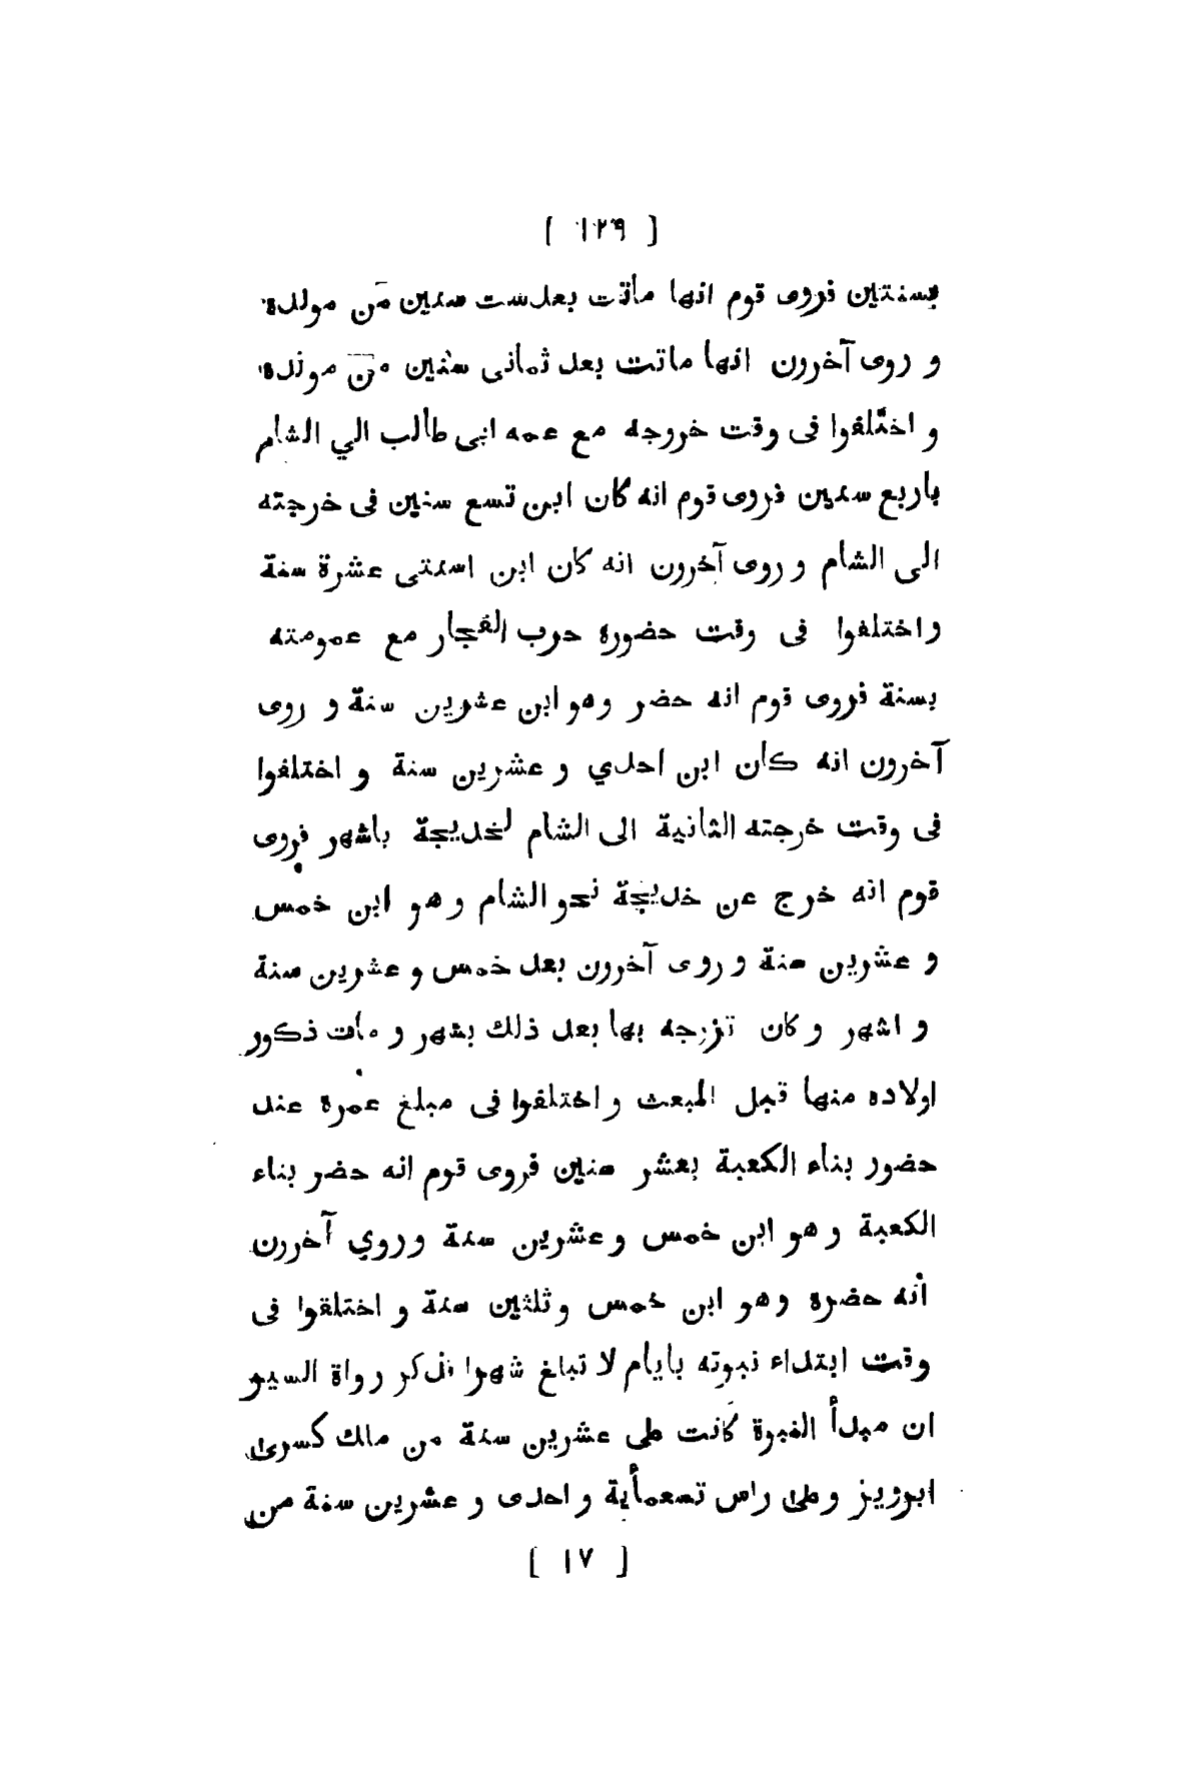 [ ١٢٩ ]
بسنتين فروى قوم انها ماتت بعد ست سنين من مولده
و روى آخرون انها ماتت بعد ثمانى سنين من مولده
و اختلفوا فى وقت خروجه مع عمه ابى طالب الي الشام
باربع سنين فروى قوم انه كان ابن تسع سنين فى خرجته
الى الشام و روى آخرون انه كان ابن اسنتى عشرة سنة
واختلفوا فى وقت حضوره حرب الفجار مع عمومته
بسنة فروى قوم انه حضر وهو ابن عشرين سنة و روى
آخرون انه كان ابن احدي و عشرين سنة و اختلفوا
فى وقت خرجته الثانية الى الشام لخديجة باشهر فروى
قوم انه خرج عن خديجة نحو الشام و هو ابن خمس
و عشرين سنة و روى آخرون بعد خمس و عشرين سنة
و اشهر و كان تزوجه بها بعد ذلك بشهر و مات ذكور
اولاده منها قبل المبعث و اختلفوا فى مبلغ عمره عند
حضور بناء الكعبة بعشر سنين فروى قوم انه حضر بناء
الكعبة و هو ابن خمس و عشرين سنة وروي آخرون
انه حضره وهو ابن خمس و ثلثين سنة و اختلفوا فى
وقت ابتداء نبوته بايام لا تبلغ شهرا فذكر رواة السير
ان مبدأ النبوة كانت على عشرين سنة من ملك كسرى
ابرويز وعلى راس تسعمأية و احدى و عشرين سنة من
[ ١٧ ]